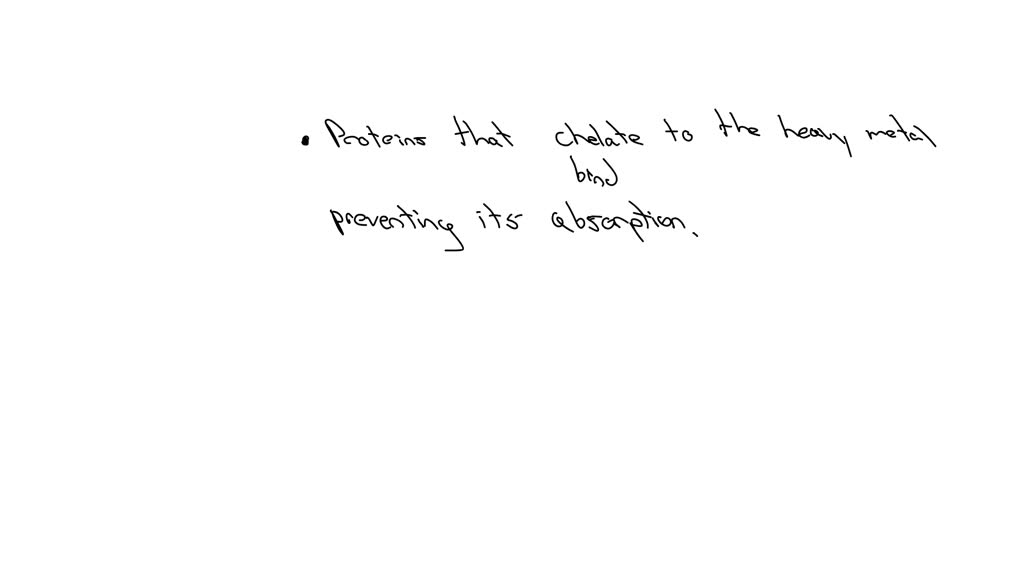 • Proteins that chelate to the heavy metal
bind
preventing its absorption.